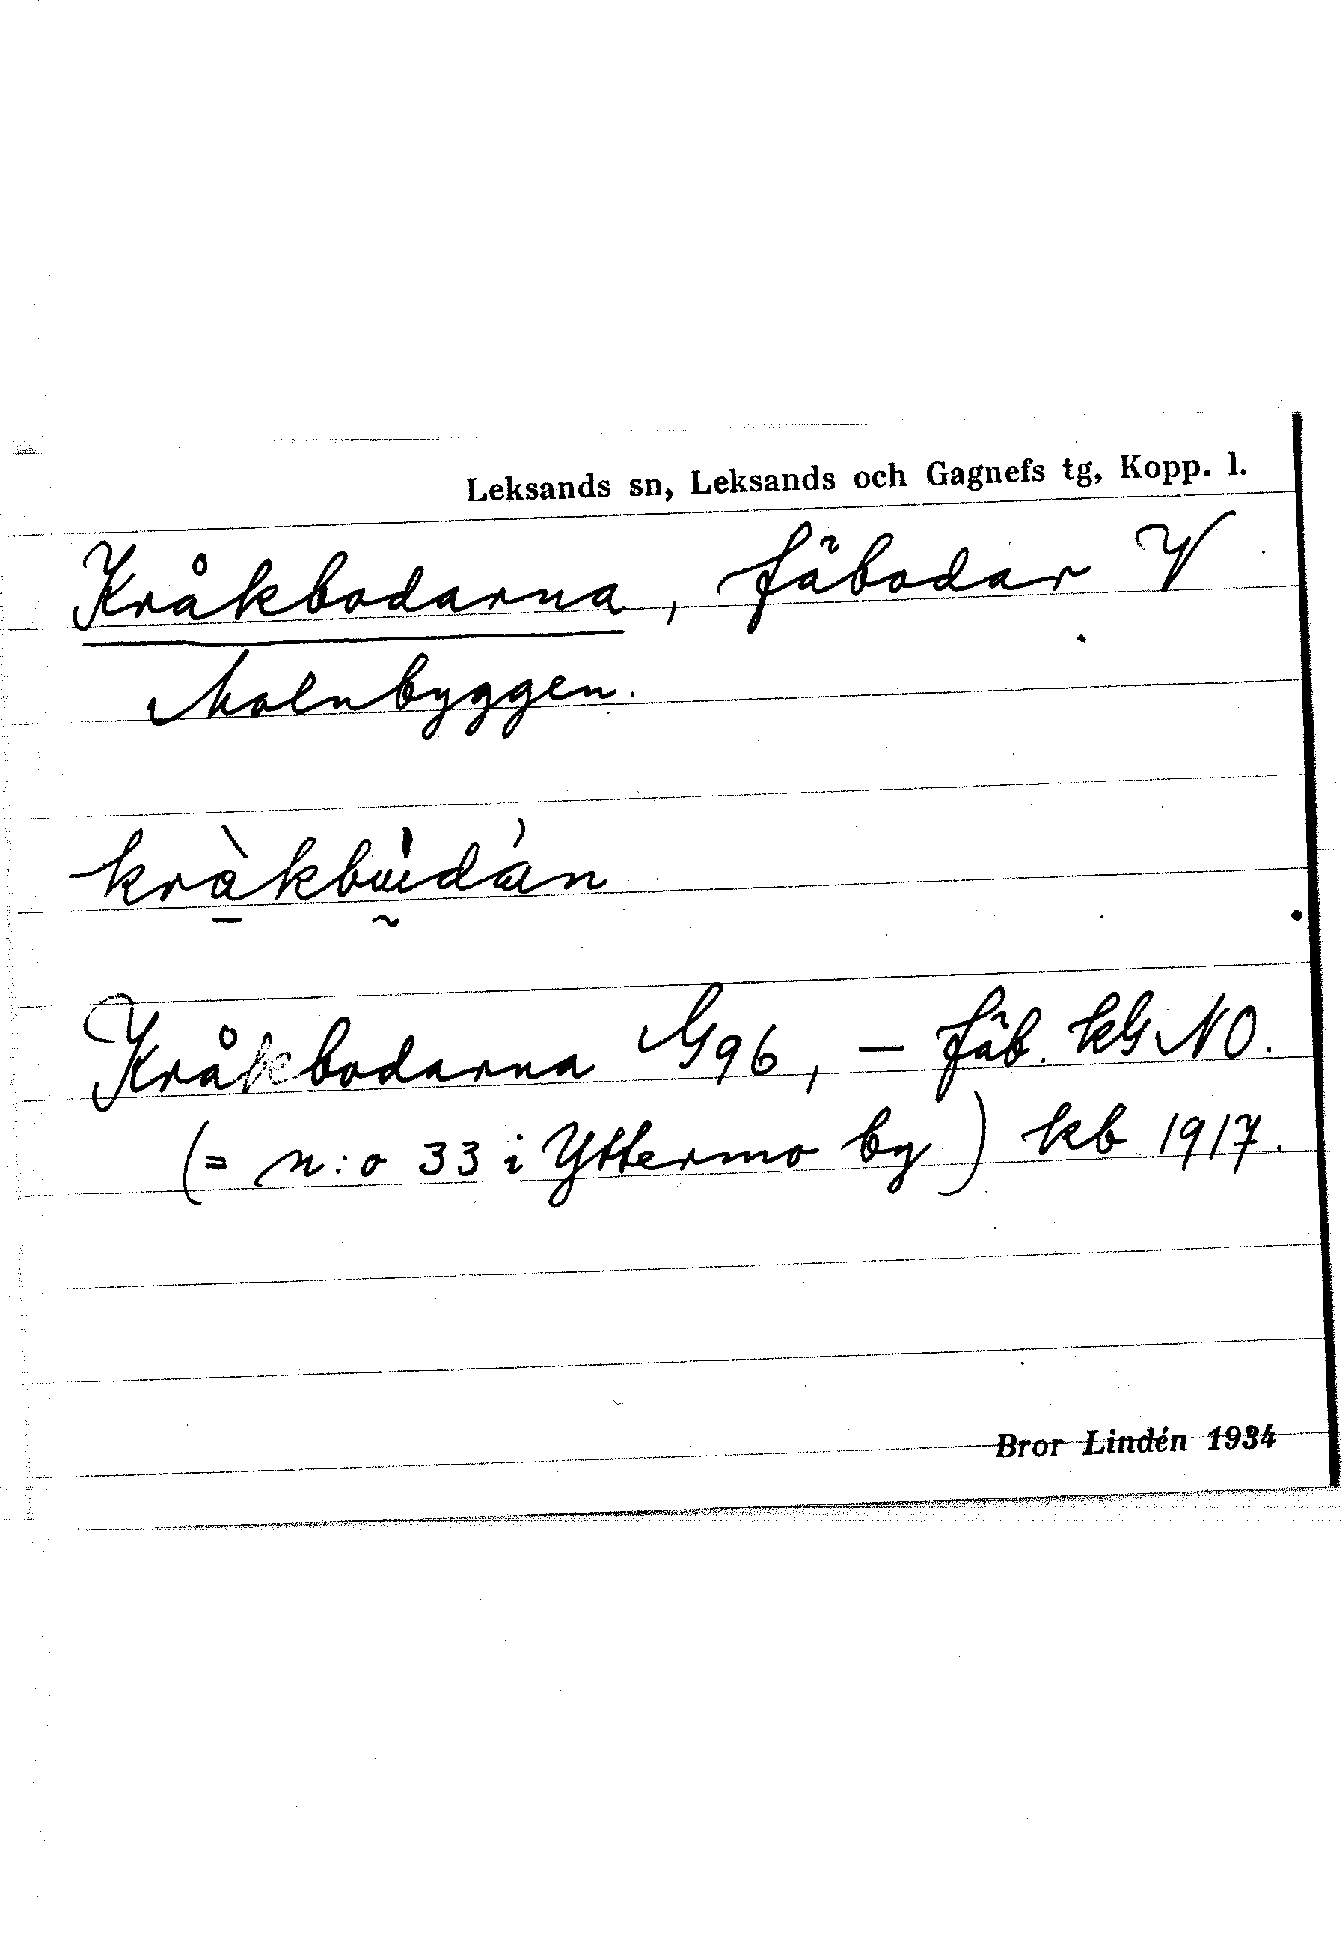 Leksands sn, Leksands och Gagnefs tg, Kopp. l.
Kråkbodarna, fäbodar V
Molnbyggen.
Kråkbodarna G96, — fäb. kG NO.
(= n:o 33 i Yttermo by) kb 1917.
Bror Lindén 1934